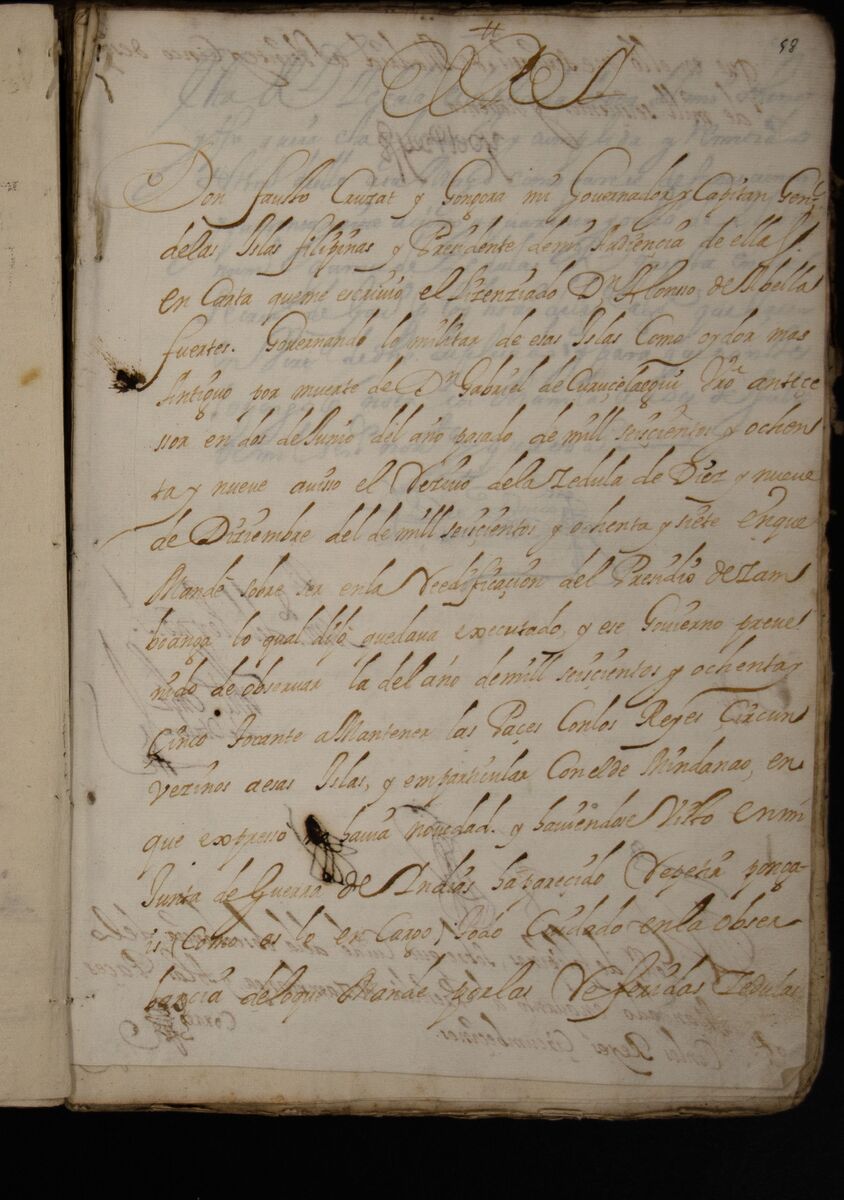 58
El Rey
Don fausto Cruzat y Gongora mi Governador y Capitan Gen.l
delas Islas filipinas y Presidente demi Audiencia de ellas.
en Carta queme escrivio el Lizenziado D.n Alonso de Abella
fuertes. Governando lo militar de esas Islas Como oydor mas
Antiguo por muerte de D.n Gabriel de Curuçelaegui Vro. anteçe
ssor en dos de Junio del año pasado de mill seisçientos y ochen
ta y nueve aviso el Rezivo dela Zedula de Diez y nueve
de Diziembre del de mill seisçientos y ochenta y siete enque
Mandè sobre ser enla Reedificaçion del Presidio de Zam
boanga lo qual dijo quedava executado, y ese Govierno preve
nido de observar la del año demill seisçientos y ochenta y
Cinco tocante a Mantener las Paçes Conlos Reyes Çircun
vezinos aesas Islas, y emparticular Conelde Mindanao, en
que expresso no havia novedad. y haviendose Visto enmi
Junta de Guerra de Indias ha pareçido Repetir pongª-
is (Como es lo en Cargo) todo Cuidado enla obser-
bancia deloque Mandè porlas Referidas Zedulas